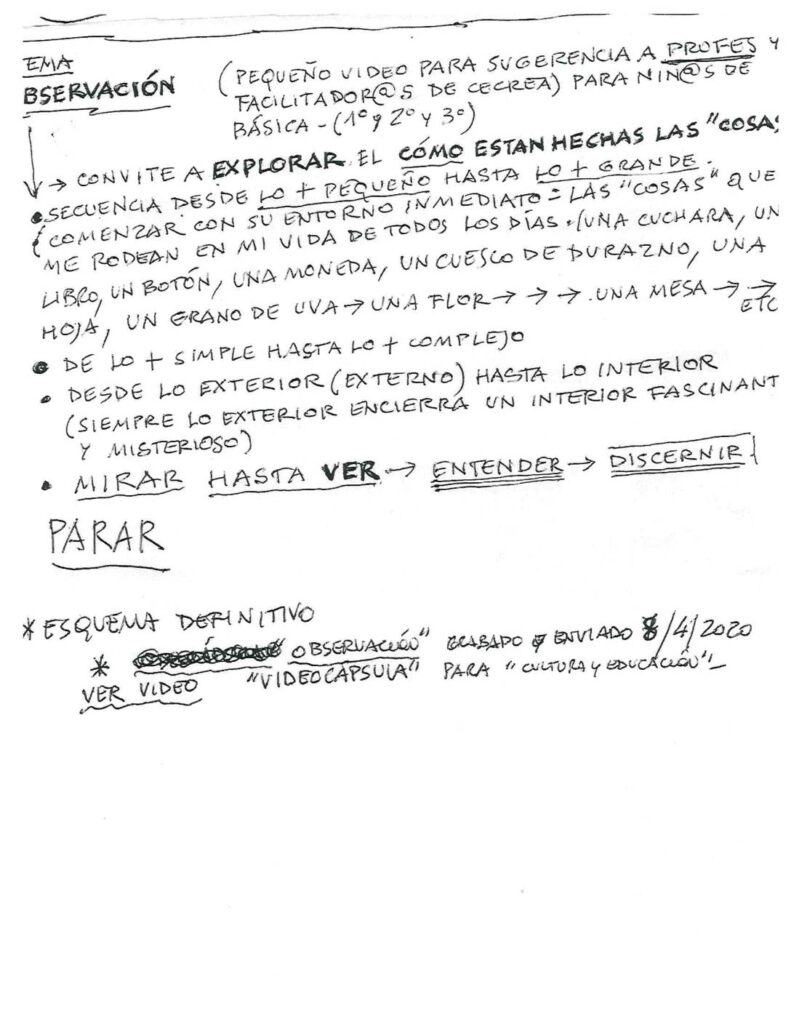 EMA
BSERVACIÓN
(PEQUEÑO VIDEO PARA SUGERENCIA A PROFES Y
FACILITADOR@S DE CECREA) PARA NIÑ@S DE
BÁSICA - (1º y 2º y 3º)
→ CONVITE A EXPLORAR EL CÓMO ESTAN HECHAS LAS "COSAS
• SECUENCIA DESDE LO + PEQUEÑO HASTA LO + GRANDE.
(COMENZAR CON SU ENTORNO INMEDIATO = LAS "COSAS" QUE
ME RODEAN EN MI VIDA DE TODOS LOS DÍAS. (UNA CUCHARA, UN
LIBRO, UN BOTÓN, UNA MONEDA, UN CUESCO DE DURAZNO, UNA
HOJA, UN GRANO DE UVA → UNA FLOR → → → . UNA MESA → →
ETC
• DE LO + SIMPLE HASTA LO + COMPLEJO
• DESDE LO EXTERIOR (EXTERNO) HASTA LO INTERIOR
(SIEMPRE LO EXTERIOR ENCIERRA UN INTERIOR FASCINANT
Y MISTERIOSO)
• MIRAR HASTA VER → ENTENDER → DISCERNIR
PARAR
* ESQUEMA DEFINITIVO
* OBSERVACIÓN" GRABADO y ENVIADO 8/4/2020
VER VIDEO "VIDEOCÁPSULA" PARA "CULTURA y EDUCACIÓN"